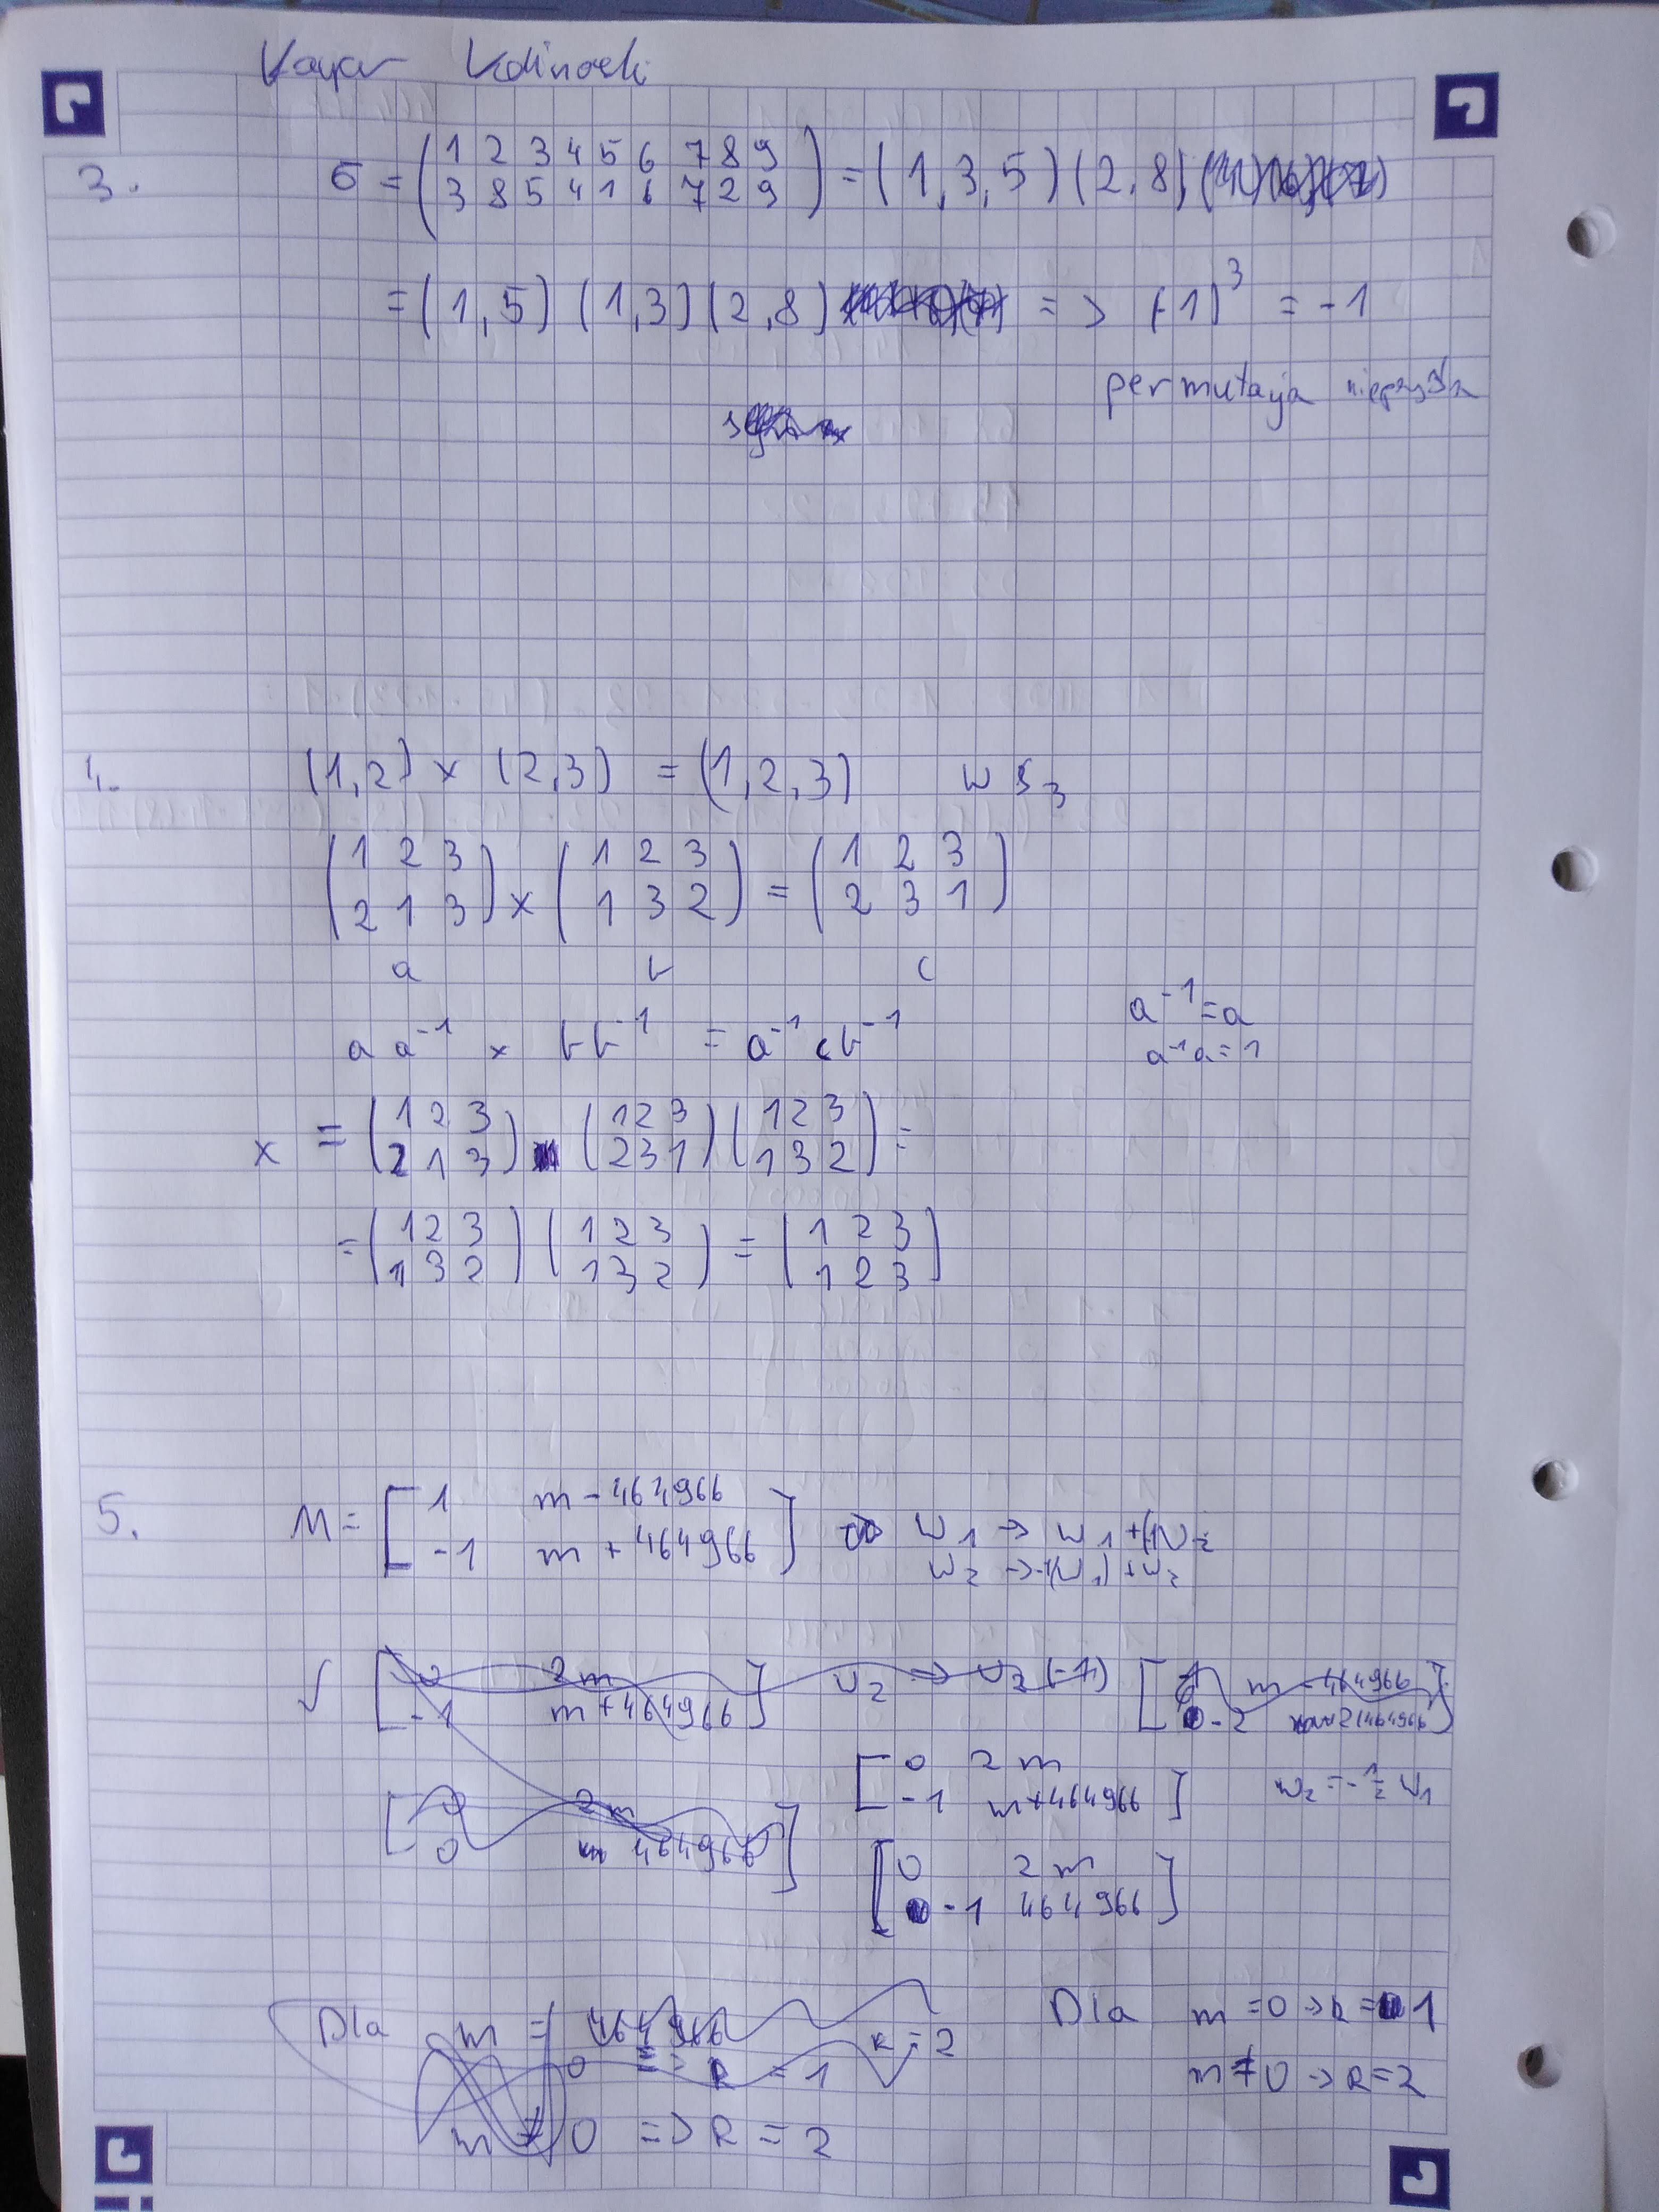 3.
σ = ( 1 2 3 4 5 6 7 8 9
3 8 5 4 1 6 7 2 9 ) = (1,3,5)(2,8)
= (1,5)(1,3)(2,8) => (-1)^3 = -1
permutacja nieparzysta
4. (1,2) x (2,3) = (1,2,3) w S3
( 1 2 3
2 1 3 ) x ( 1 2 3
1 3 2 ) = ( 1 2 3
2 3 1 )
a b c
a a^-1 x b b^-1 = a^-1 c b^-1
a^-1 = a
a^-1 a = 1
x = ( 1 2 3
2 1 3 ) ( 1 2 3
2 3 1 ) ( 1 2 3
1 3 2 ) =
= ( 1 2 3
1 3 2 ) ( 1 2 3
1 3 2 ) = ( 1 2 3
1 2 3 )
5. M = [ 1 m - 464966
-1 m + 464966 ]
w1 -> w1 + (1)w2
w2 -> -1(w1) + w2
[ 0 2m
-1 m+464966 ] w2 -> w2 (-1) [ m - 464966
-2 ]
[ 0 2m
-1 m+464966 ] w2 = -1/2 w1
[ 0 2m
0 m 464966 ]
[ 0 2m
-1 464966 ]
Dla m = 464966 R = 2
0 => R = 1
m ≠ 0 => R = 2
Dla m = 0 -> R = 1
m ≠ 0 -> R = 2